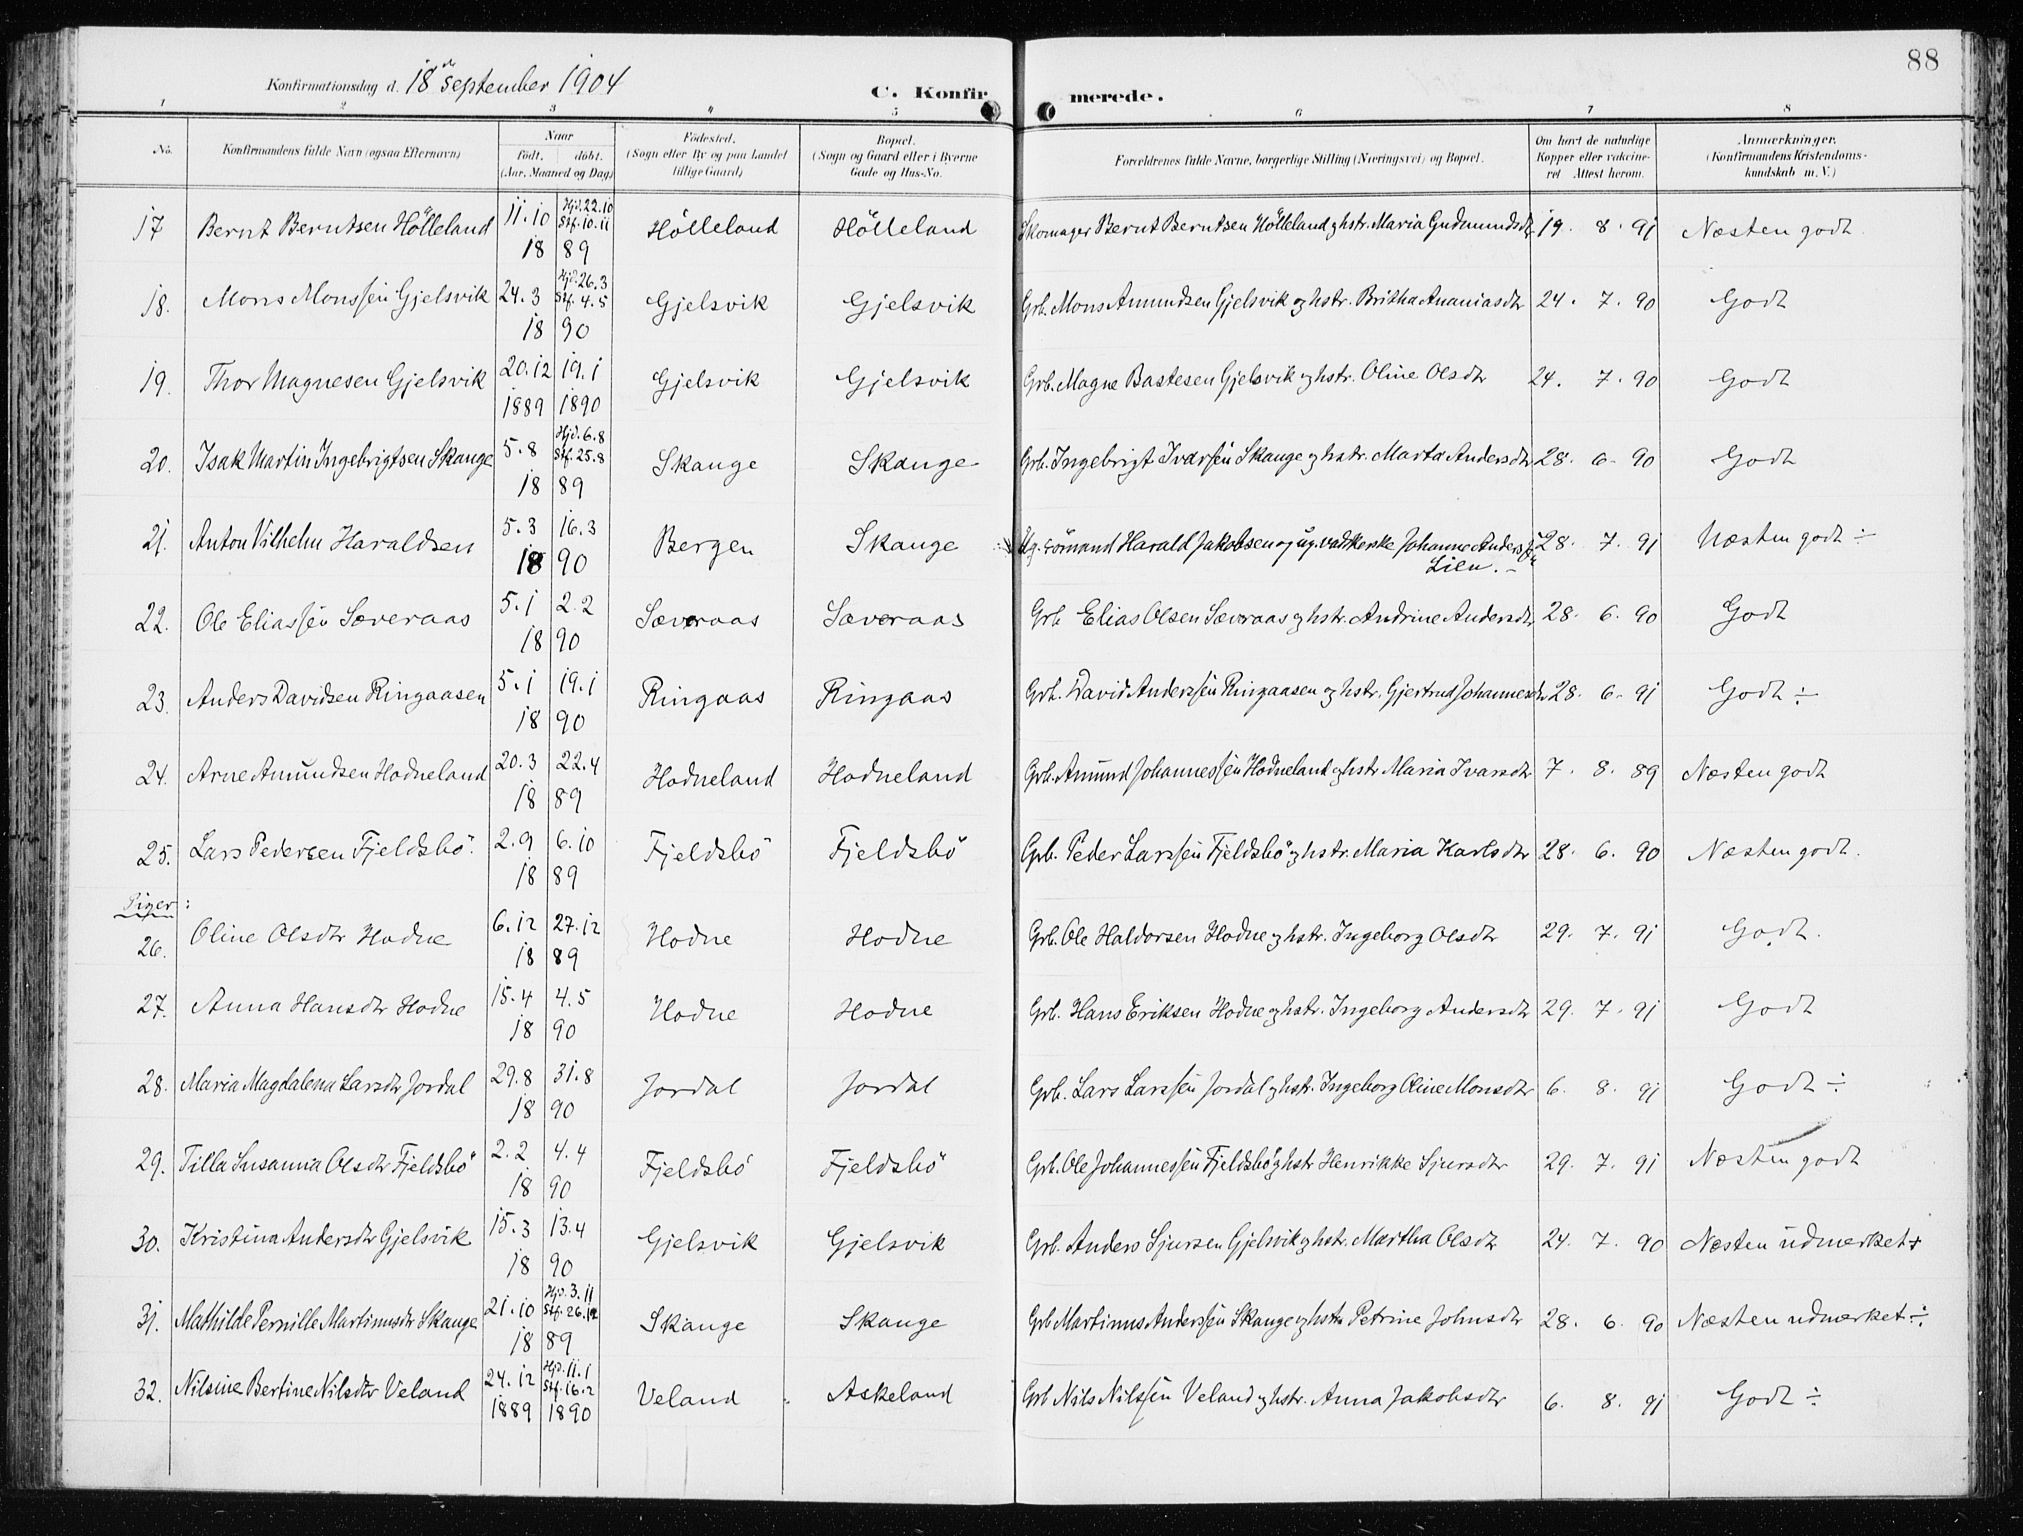 88
Konfirmationsdag d. 18de september 1904
C. Konfirmerede.
1 2 3 4 5 6 7 8
No. Konfirmandens fulde Navn (ogsaa Efternavn) Naar født. døbt. (Aar, Maaned og Dag) Fødested. (Sogn eller By og paa Landet tillige Gaard) Bopæl. (Sogn og Gaard eller i Byerne Gade og Hus-No. Forældrenes fulde Navne, borgerlige Stilling (Næringsvei) og Bopæl. Om havt de naturlige Kopper eller vakcineret Attest herom. Anmærkninger. (Konfirmandens Kristendomskundskab m. V.)
17 Bernt Berntsen Hölleland 11.10 Hjd. 22.10 Stf. 10.11 1889 Hölleland Hölleland Skomager Bernt Berntsen Hölleland og hstr. Maria Gudmundsdtr 19. 8. 91 Næsten godt
18. Mons Monssen Gjelsvik 24.3 Hjd. 26.3 Stf. 4.5 1890 Gjelsvik Gjelsvik Grb. Mons Amundsen Gjelsvik og hstr. Britha Ananiasdtr 24. 7. 90 Godt
19. Thor Magnesen Gjelsvik 20.12 1889 19.1 1890 Gjelsvik Gjelsvik Grb. Magne Bastesen Gjelsvik og hstr. Oline Olsdtr 24. 7. 90 Godt
20. Isak Martin Ingebrigtsen Skauge 5.8 Hjd. 6.8 Stf. 25.8 1889 Skauge Skauge Grb. Ingebrigt Ivarsen Skauge og hstr. Marta Andersdtr 28. 6. 90 Godt
21. Anton Vilhelm Haraldsen 5.3 16.3 1890 Bergen Skauge Ug. sömand Harald Jakobsen og ug. vadkerske Johanne Andersdtr Lien. 28. 7. 91 Næsten godt ÷
22. Ole Eliassen Sæveraas 5.1 2.2 1890 Sæveraas Sæveraas Grb. Elias Olsen Sæveraas og hstr. Andrine Andersdtr 28. 6. 90 Godt
23. Anders Davidsen Ringaasen 5.1 19.1 1890 Ringaas Ringaas Grb. David Anderssen Ringaasen og hstr. Gjertrud Johannesdtr 28. 6. 91 Godt ÷
24. Arne Amundsen Hodneland 20.3 22.4 1889 Hodneland Hodneland Grb. Amund Johannessen Hodneland og hstr Maria Ivarsdtr 7. 8. 89 Næsten godt
25. Lars Pedersen Fjeldsbö. 2.9 6.10 1889 Fjeldsbö Fjeldsbö Grb. Peder Larssen Fjeldsbö og hstr. Maria Karlsdtr 28. 6. 90 Næsten godt.
Piger:
26. Oline Olsdtr Hodne 6.12 27.12 1889 Hodne Hodne Grb. Ole Haldorsen Hodne og hstr. Ingeborg Olsdtr 29. 7. 91 Godt.
27. Anna Hansdtr Hodne 15.4 4.5 1890 Hodne Hodne Grb. Hans Eriksen Hodne og hstr. Ingeborg Andersdtr 29. 7. 91 Godt
28. Maria Magdalena Larsdtr Jordal 29.8 31.8 1890 Jordal Jordal Grb. Lars Larssen Jordal og hstr. Ingeborg Oline Monsdtr 6. 8. 91 Godt ÷
29. Tilla Susanna Olsdtr Fjeldsbö 2.2 4.4 1890 Fjeldsbö Fjeldsbö Grb. Ole Johannessen Fjeldsbö og hstr Henrikke Sjursdtr 29. 7. 91 Næsten godt
30. Kristina Andersdtr Gjelsvik 15.3 13.4 1890 Gjelsvik Gjelsvik Grb. Anders Sjursen Gjelsvik og hstr. Martha Olsdtr 24. 7. 90 Næsten udmerket +
31. Mathilde Pernille Martinusdtr Skauge 21.10 Hjd. 3.11 Stf. 26.12 1889 Skauge Skauge Grb Martinus Anderssen Skauge og hstr Petrine Johnsdtr 28. 6. 90 Næsten udmerket ÷
32. Nilsine Bertine Nilsdtr Veland 24.12 1889 Hjd. 11.1 Stf. 16.2 1890 Veland Askeland Grb Nils Nilssen Veland og hstr. Anna Jakobsdtr 6. 8. 91 Godt ÷